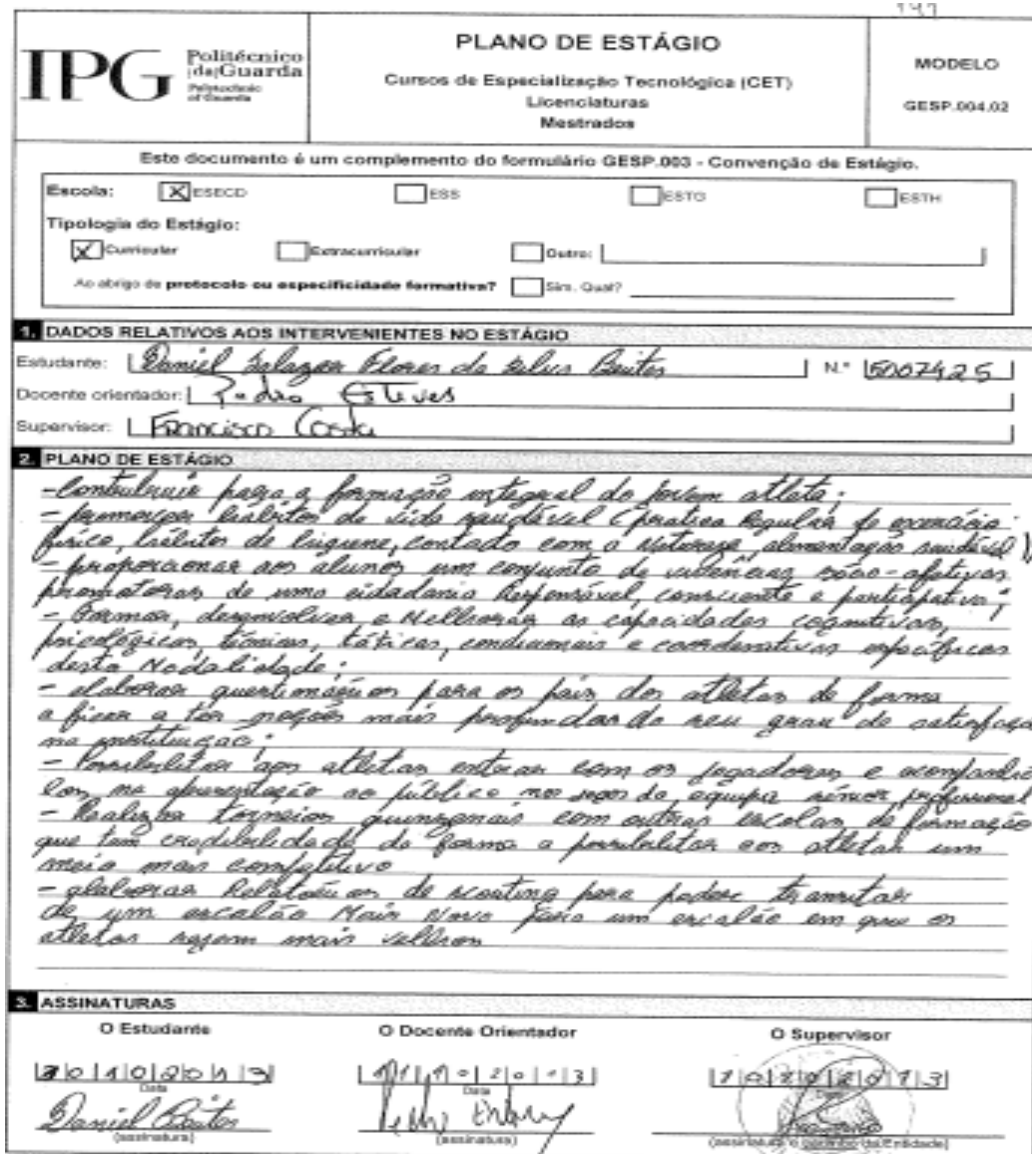 147
IPG
Politécnico
|da|Guarda
Polytechnic
of Guarda
PLANO DE ESTÁGIO
Cursos de Especialização Tecnológica (CET)
Licenciaturas
Mestrados
MODELO
GESP.004.02
Este documento é um complemento do formulário GESP.003 - Convenção de Estágio.
Escola: X ESECD ESS ESTG ESTH
Tipologia do Estágio:
X Curricular Extracurricular Outro:
Ao abrigo de protocolo ou especificidade formativa? Sim. Qual?
1. DADOS RELATIVOS AOS INTERVENIENTES NO ESTÁGIO
Estudante: Daniel Salazar Flores da Silva Bentos N.º 5007425
Docente orientador: Pedro Esteves
Supervisor: Francisco Costa
2. PLANO DE ESTÁGIO
- Contribuir para a formação integral do jovem atleta;
- promover hábitos de vida saudável (pratica Regular de exercício
físico, hábitos de higiene, contado com a Natureza, alimentação saudável)
- proporcionar aos alunos um conjunto de vivências sócio-afetivas
promotoras de uma cidadania Responsável, consciente e participativa;
- Formar, desenvolver e Melhorar as capacidades cognitivas,
psicológicas, técnicas, táticas, condicionais e coordenativas específicas
desta Modalidade;
- elaborar questionários para os pais dos atletas de forma
a ficar a ter noções mais profundas do seu grau de satisfação
na instituição;
- Possibilitar aos atletas entrar com os jogadores e
na apresentação ao público nos jogos da equipa sénior profissional
- Realizar torneios quinzenais com outras escolas de formação
que tem credibilidade de forma a possibilitar aos atletas um
meio mais competitivo
- elaborar Relatórios de scouting para poder transitar
de um escalão Mais Novo para um escalão em que os
atletas sejam mais velhos
3. ASSINATURAS
O Estudante O Docente Orientador O Supervisor
Data Data Data
Daniel Bentos
(assinatura) (assinatura) (assinatura e carimbo da Entidade)